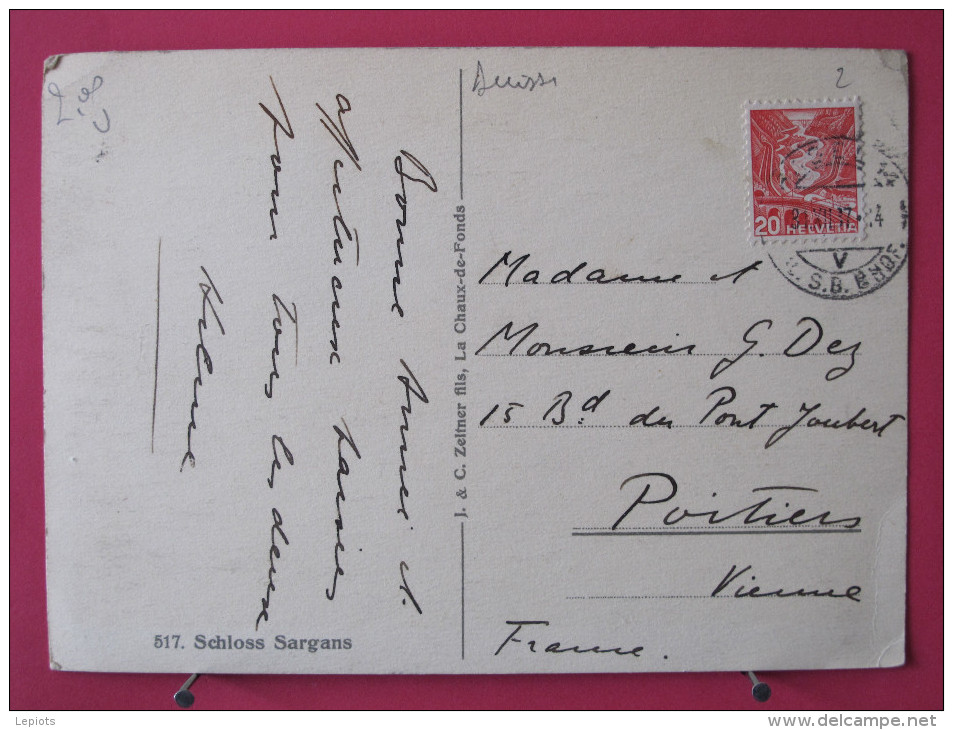 Suisse
2
20 HELVETIA
V
S.B.
Bonne Année et
affectueux baisers
pour tous les deux
J. & C. Zeltner fils, La Chaux-de-Fonds
Madame et
Monsieur G. Dez
15 Bd. du Pont Joubert
Poitiers
Vienne
France.
517. Schloss Sargans
Lepiots
www.delcampe.net